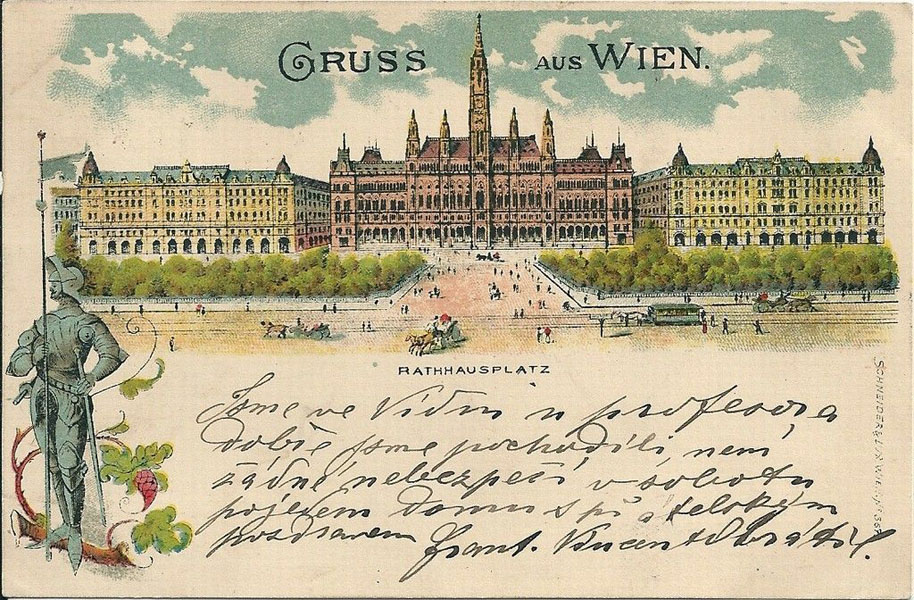 GRUSS AUS WIEN.
RATHHAUSPLATZ
Jsme ve Vídni u profesora
dobře jsme pochodili, není
žádné nebezpečí, v sobotu
pojedem domu s přátelským
pozdravem Frant. Vincent
SCHNEIDER & LUX WIEN